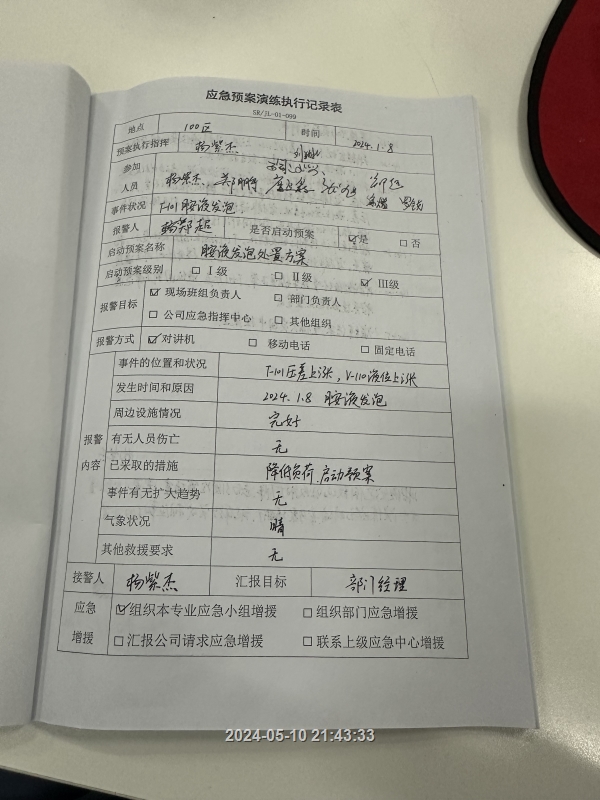 应急预案演练执行记录表
SR/JL-01-099
地点 100区 时间 2024.1.8
预案执行指挥 杨紫杰
参加人员 杨紫杰
事件状况 T-101胺液发泡
报警人 是否启动预案 ☑是 □否
启动预案名称 胺液发泡处置方案
启动预案级别 □Ⅰ级 □Ⅱ级 ☑Ⅲ级
报警目标 ☑现场班组负责人 □部门负责人
□公司应急指挥中心 □其他组织
报警方式 ☑对讲机 □移动电话 □固定电话
报警内容 事件的位置和状况 T-101压差上涨，V-110液位上涨
发生时间和原因 2024.1.8 胺液发泡
周边设施情况 完好
有无人员伤亡 无
已采取的措施 降低负荷.启动预案
事件有无扩大趋势 无
气象状况 晴
其他救援要求 无
接警人 杨紫杰 汇报目标 部门经理
应急增援 ☑组织本专业应急小组增援 □组织部门应急增援
□汇报公司请求应急增援 □联系上级应急中心增援
2024-05-10 21:43:33